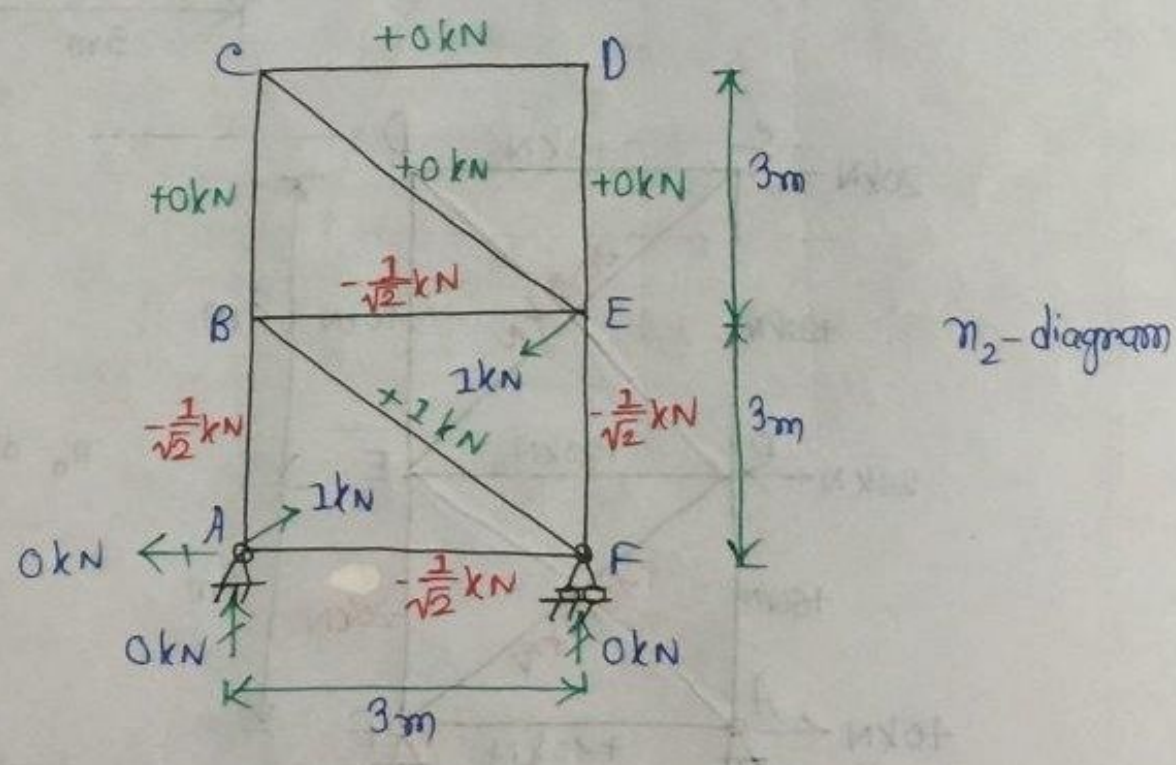 +0kN
C
D
+0kN
+0kN
+0kN
3m
-1/√2 kN
B
E
1kN
n₂-diagram
-1/√2 kN
+1kN
-1/√2 kN
3m
1kN
A
0kN
F
-1/√2 kN
0kN
0kN
3m